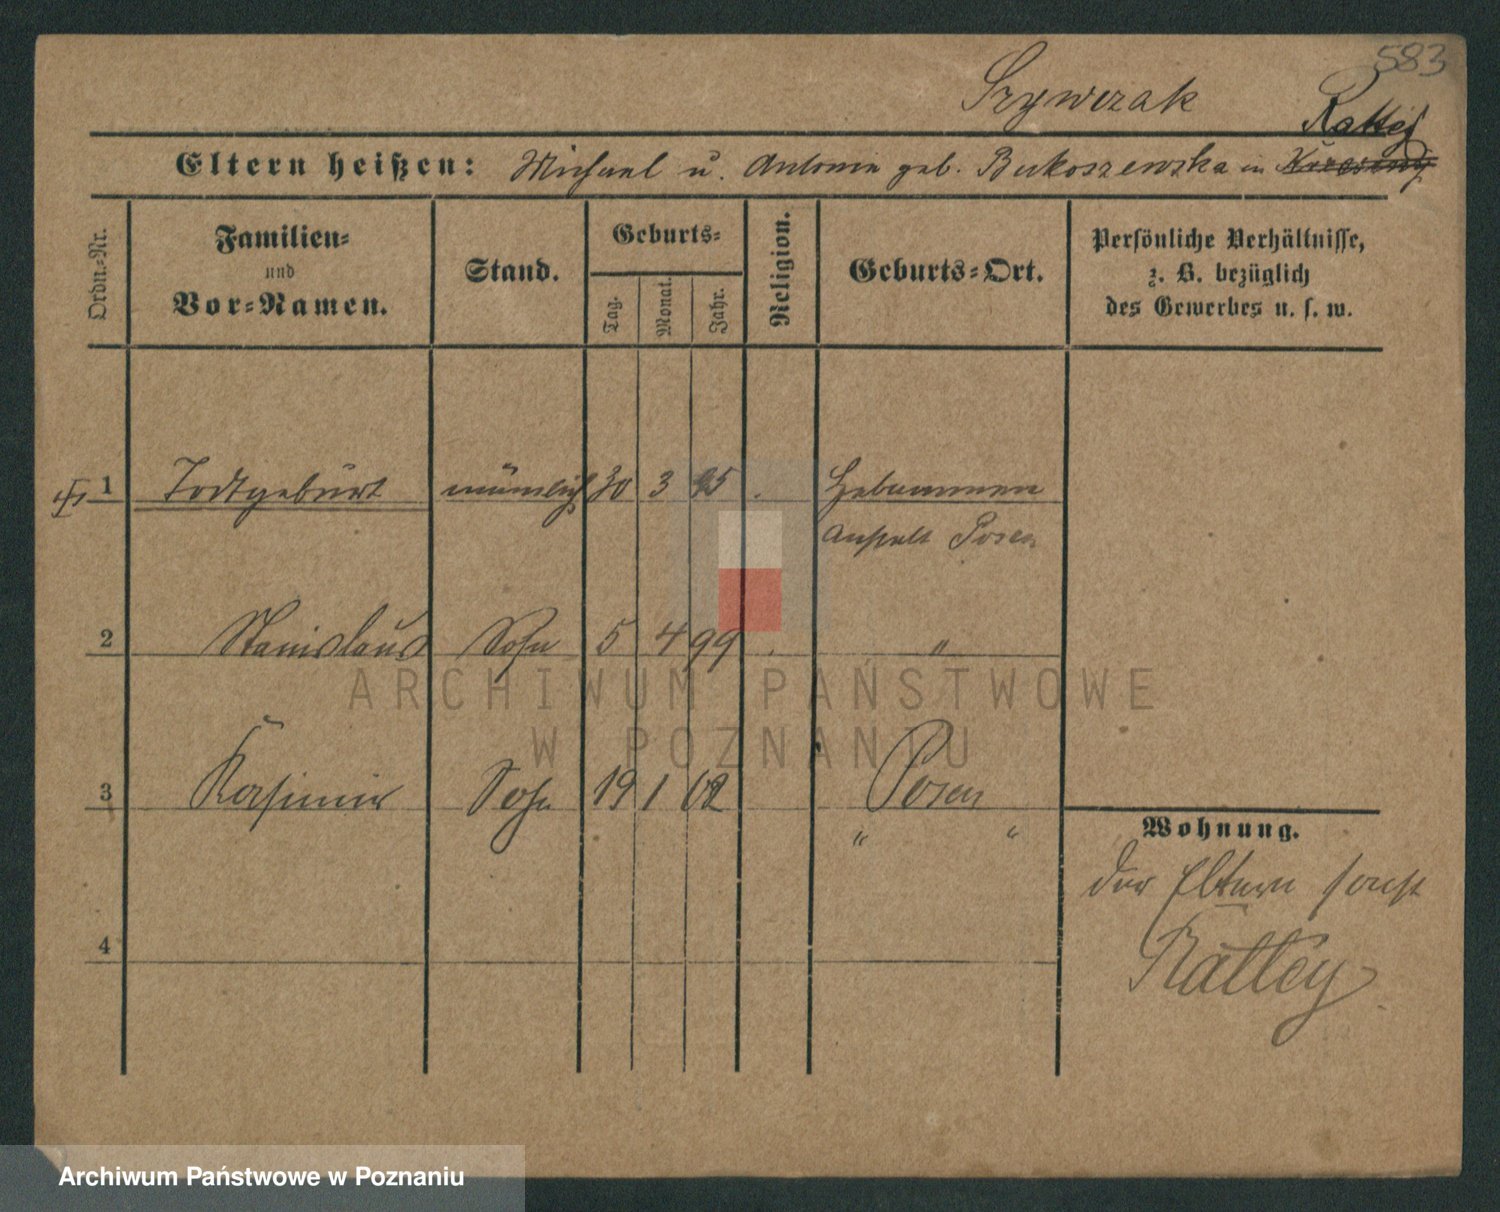 583
Szywczak
Rattej
Eltern heißen: Michael u. Antonie geb. Bukoszewska in
Ordn.-Nr.
Familien-
und
Vor-Namen.
Stand.
Geburts-
Tag.
Monat.
Jahr.
Religion.
Geburts-Ort.
Persönliche Verhältnisse,
z. B. bezüglich
des Gewerbes u. s. w.
1 Todtgeburt männlich 30 3 95 Hebammen
Anstalt Posen
2 Stanislaus Sohn 5 4 99 "
3 Kasimir Sohn 19 1 02 Posen
" "
4
Wohnung.
der Eltern sonst
Rattey
ARCHIWUM PAŃSTWOWE
W POZNANIU
Archiwum Państwowe w Poznaniu